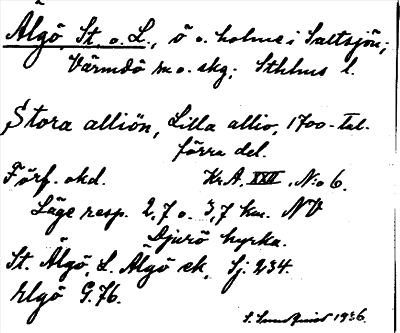 Älgö, St. o. L., ö o. holme i Saltsjön;
Värmdö sn o. skg; Sthlms l.
Stora alliön, Lilla allio, 1700-tal.
förra del.
Förf. okd. Kr.A. XXII. No 6.
Läge resp. 2,7 o. 3,7 km. NV
Djurö kyrka.
St. Älgö, L. Älgö ek, Sj: 234.
Elgö G.76.
1936